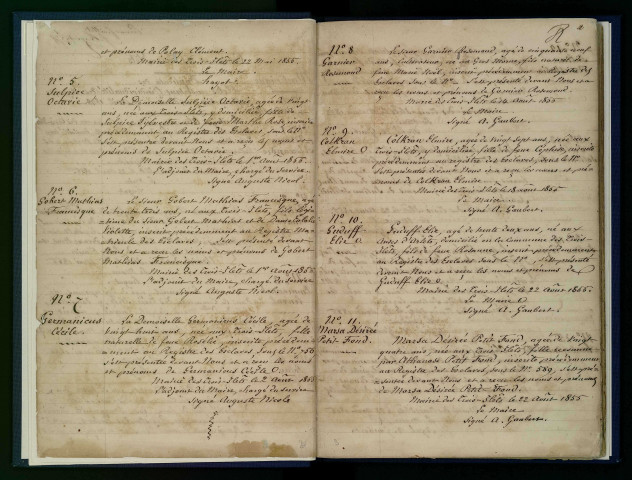 et prénoms de Palay Clément.
Mairie des Trois-Ilets le 22 Mai 1855.
Le Maire
Hayot
No 5.
Sulpice
Octavie
La Demoiselle Sulpice Octavie, agée de vingt
ans, née aux Trois-Ilets, y domiciliée, fille de
Sulpice Sylvestre et de Marthe Rose, inscrite
précédemment au Registre des Esclaves, sous le No
S'est présentée devant Nous et a reçu les noms et
prénoms de Sulpice Octavie.
Mairie des Trois-Ilets le 1er Août 1855.
L'adjoint du Maire, chargé du service
Signé Auguste Nicol.
No 6.
Gobert Mathias
Francisque
Le Sieur Gobert Mathias Francisque, agé
de trente trois ans, né aux Trois-Ilets, fils
du Sieur Gobert et de
Violette, inscrit précédemment au Registre Ma-
tricule des Esclaves, s'est présenté devant
Nous et a reçu les noms et prénoms de Gobert
Mathias Francisque.
Mairie des Trois-Ilets le 1er Août 1855.
L'adjoint du Maire, chargé du service
Signé Auguste Nicol.
No 7
Germanicus
Cécile.
La Demoiselle Germanicus Cécile, agée de
vingt ans, née aux Trois-Ilets, fille
naturelle de Rosélie, inscrite précédem-
ment au Registre des Esclaves sous le No
s'est présentée devant Nous et a reçu les noms
et prénoms de Germanicus Cécile.
Mairie des Trois-Ilets le 2 Août 1855
L'adjoint du Maire, chargé du service
Signé Auguste Nicole
No 8
Garnier
Rosemond
Le Sieur Garnier Rosemond, agé de cinquante neuf
ans, cultivateur, né au Gros Morne, fils naturel de
feue Marie Noël, inscrit précédemment au Registre des
Esclaves sous le No S'est présenté devant Nous et a
reçu les noms et prénoms de Garnier Rosemond
Mairie des Trois-Ilets le Août 1855
Le Maire
Signé A. Gaubert.
No 9.
Colkran
Elmire
Colkran Elmire, agée de vingt sept ans, née aux
Trois-Ilets, y domiciliée, fille de inscrite
précédemment au registre des Esclaves, sous le No
S'est présentée devant Nous et a reçu les noms et pré-
noms de Colkran Elmire
Mairie des Trois-Ilets le 18 août 1855
Le Maire
Signé A. Gaubert.
No 10.
Elie
Elie, agé de trente deux ans, né aux
Anses d'Arlets, domicilié en la Commune des Trois-
Ilets, fils de feue inscrit précédemment
au Registre des Esclaves sous le No, s'est présenté
devant Nous et a reçu les noms et prénoms de
Elie
Mairie des Trois-Ilets le 22 Août 1855.
Le Maire
Signé A. Gaubert.
No 11.
Marsa Désirée
Petit-Fond.
Marsa Désirée Petit-Fond, agée de vingt
quatre ans, née aux Trois-Ilets, fille
par Athanase Petit Fond, inscrite, précédemment
au Registre des Esclaves sous le No 589, s'est pré-
sentée devant Nous et a reçu les noms et prénoms
de Marsa Désirée Petit-Fond.
Mairie des Trois-Ilets le 22 Août 1855
Le Maire
Signé A. Gaubert.